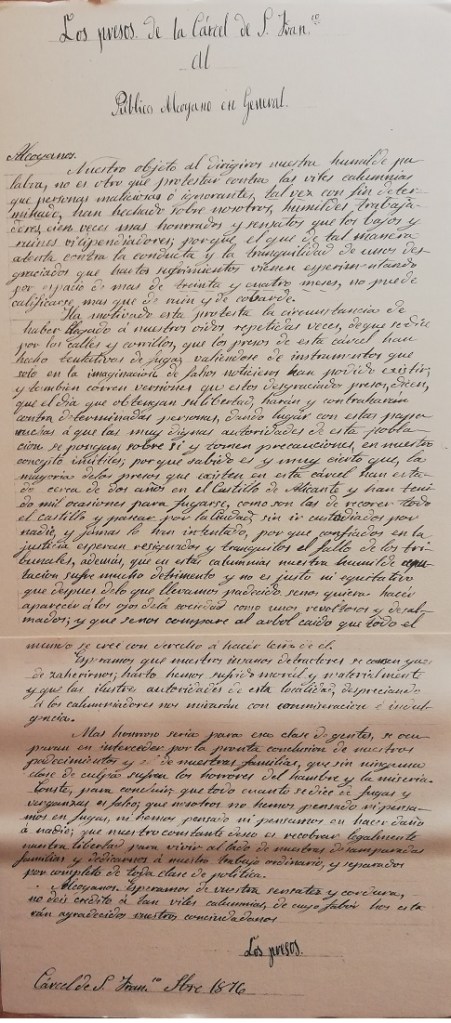 Los presos de la Cárcel de S. Fran.co
Al
Público Alcoyano en General.
Alcoyanos.
Nuestro objeto al dirigiros nuestra humilde pa-
labra, no es otro que protestar contra las viles calumnias
que personas maliciosas ó ignorantes, tal vez con fin deter-
minado, han hechado sobre nosotros, humildes trabaja-
dores, cien veces mas honrados y sensatos que los bajos y
ruines vilipendiadores; porque, el que de tal manera
atenta contra la conducta y la tranquilidad de unos des-
graciados que hartos sufrimientos vienen esperimentando
por espacio de mas de treinta y cuatro meses, no puede
calificarse mas que de ruin y de cobarde.
Ha motivado esta protesta la circunstancia de
haber llegado á nuestros oidos repetidas veces, de que se dice
por las calles y corrillos, que los presos de esta cárcel han
hecho tentativas de fugas valiendose de instrumentos que
solo en la imaginacion de falsos noticieros han podido existir;
y tambien corren versiones que estos desgraciados presos, dicen,
que el dia que obtengan su libertad, harán y contraharán
contra determinadas personas, dando lugar con estas papa-
ruchas á que las muy dignas autoridades de esta pobla-
cion se pongan sobre si y tomen precauciones, en nuestro
concepto inútiles; por que sabido es y muy cierto que, la
mayoria de los presos que existen en esta cárcel han esta-
do cerca de dos años en el Castillo de Alicante y han teni-
do mil ocasiones para fugarse, como son las de recorrer todo
el Castillo y pasear por la Ciudad, sin ir custodiados por
nadie, y jamas lo han intentado, por que confiados en la
justicia esperan resignados y tranquilos el fallo de los tri-
bunales, además, que en estas calumnias nuestra humilde repu-
tacion sufre mucho detrimento y no es justo ni equitativo
que despues de lo que llevamos padecido, se nos quiera hacer
aparecer á los ojos de la sociedad como unos revoltosos y desal-
mados; y que se nos compare al arbol caido que todo el
mundo se creé con derecho á hacer leña de el.
Esperamos que nuestros insanos detractores se cansen ya
de zaherirnos; harto hemos sufrido moral y materialmente
y que las ilustres autoridades de esta localidad, despreciando
á los calumniadores nos mirarán con conmiseracion é indul-
gencia.
Mas honroso seria para esa clase de gentes, se ocu-
paran en interceder por la pronta conclusion de nuestros
padecimientos y de nuestras familias, que sin ninguna
clase de culpa sufren los horrores del hambre y la miseria.
Conste, para concluir, que todo cuanto se dice de fugas y
venganzas es falso; que nosotros no hemos pensado ni pensa-
mos en fugas, ni hemos pensado ni pensamos en hacer daño
á nadie; que nuestro constante deseo es recobrar legalmente
nuestra libertad para vivir al lado de nuestras desamparadas
familias y dedicarnos á nuestro trabajo ordinario, y separados
por completo de toda clase de política.
Alcoyanos: Esperamos de vuestra sensatez y cordura,
no deis crédito á tan viles calumnias, de cuyo fabor hos esta-
rán agradecidos vuestros conciudadanos
Los presos.
Cárcel de S. Fran.co 1876